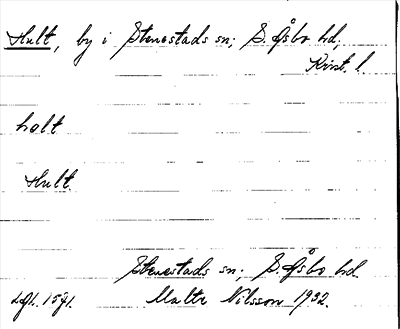 Hult, by i Stenestads sn; S. Åsbo hd,
Krist. l.
holt
Hult
Stenestads sn; S. Åsbo hd.
Malte Nilsson 1932.